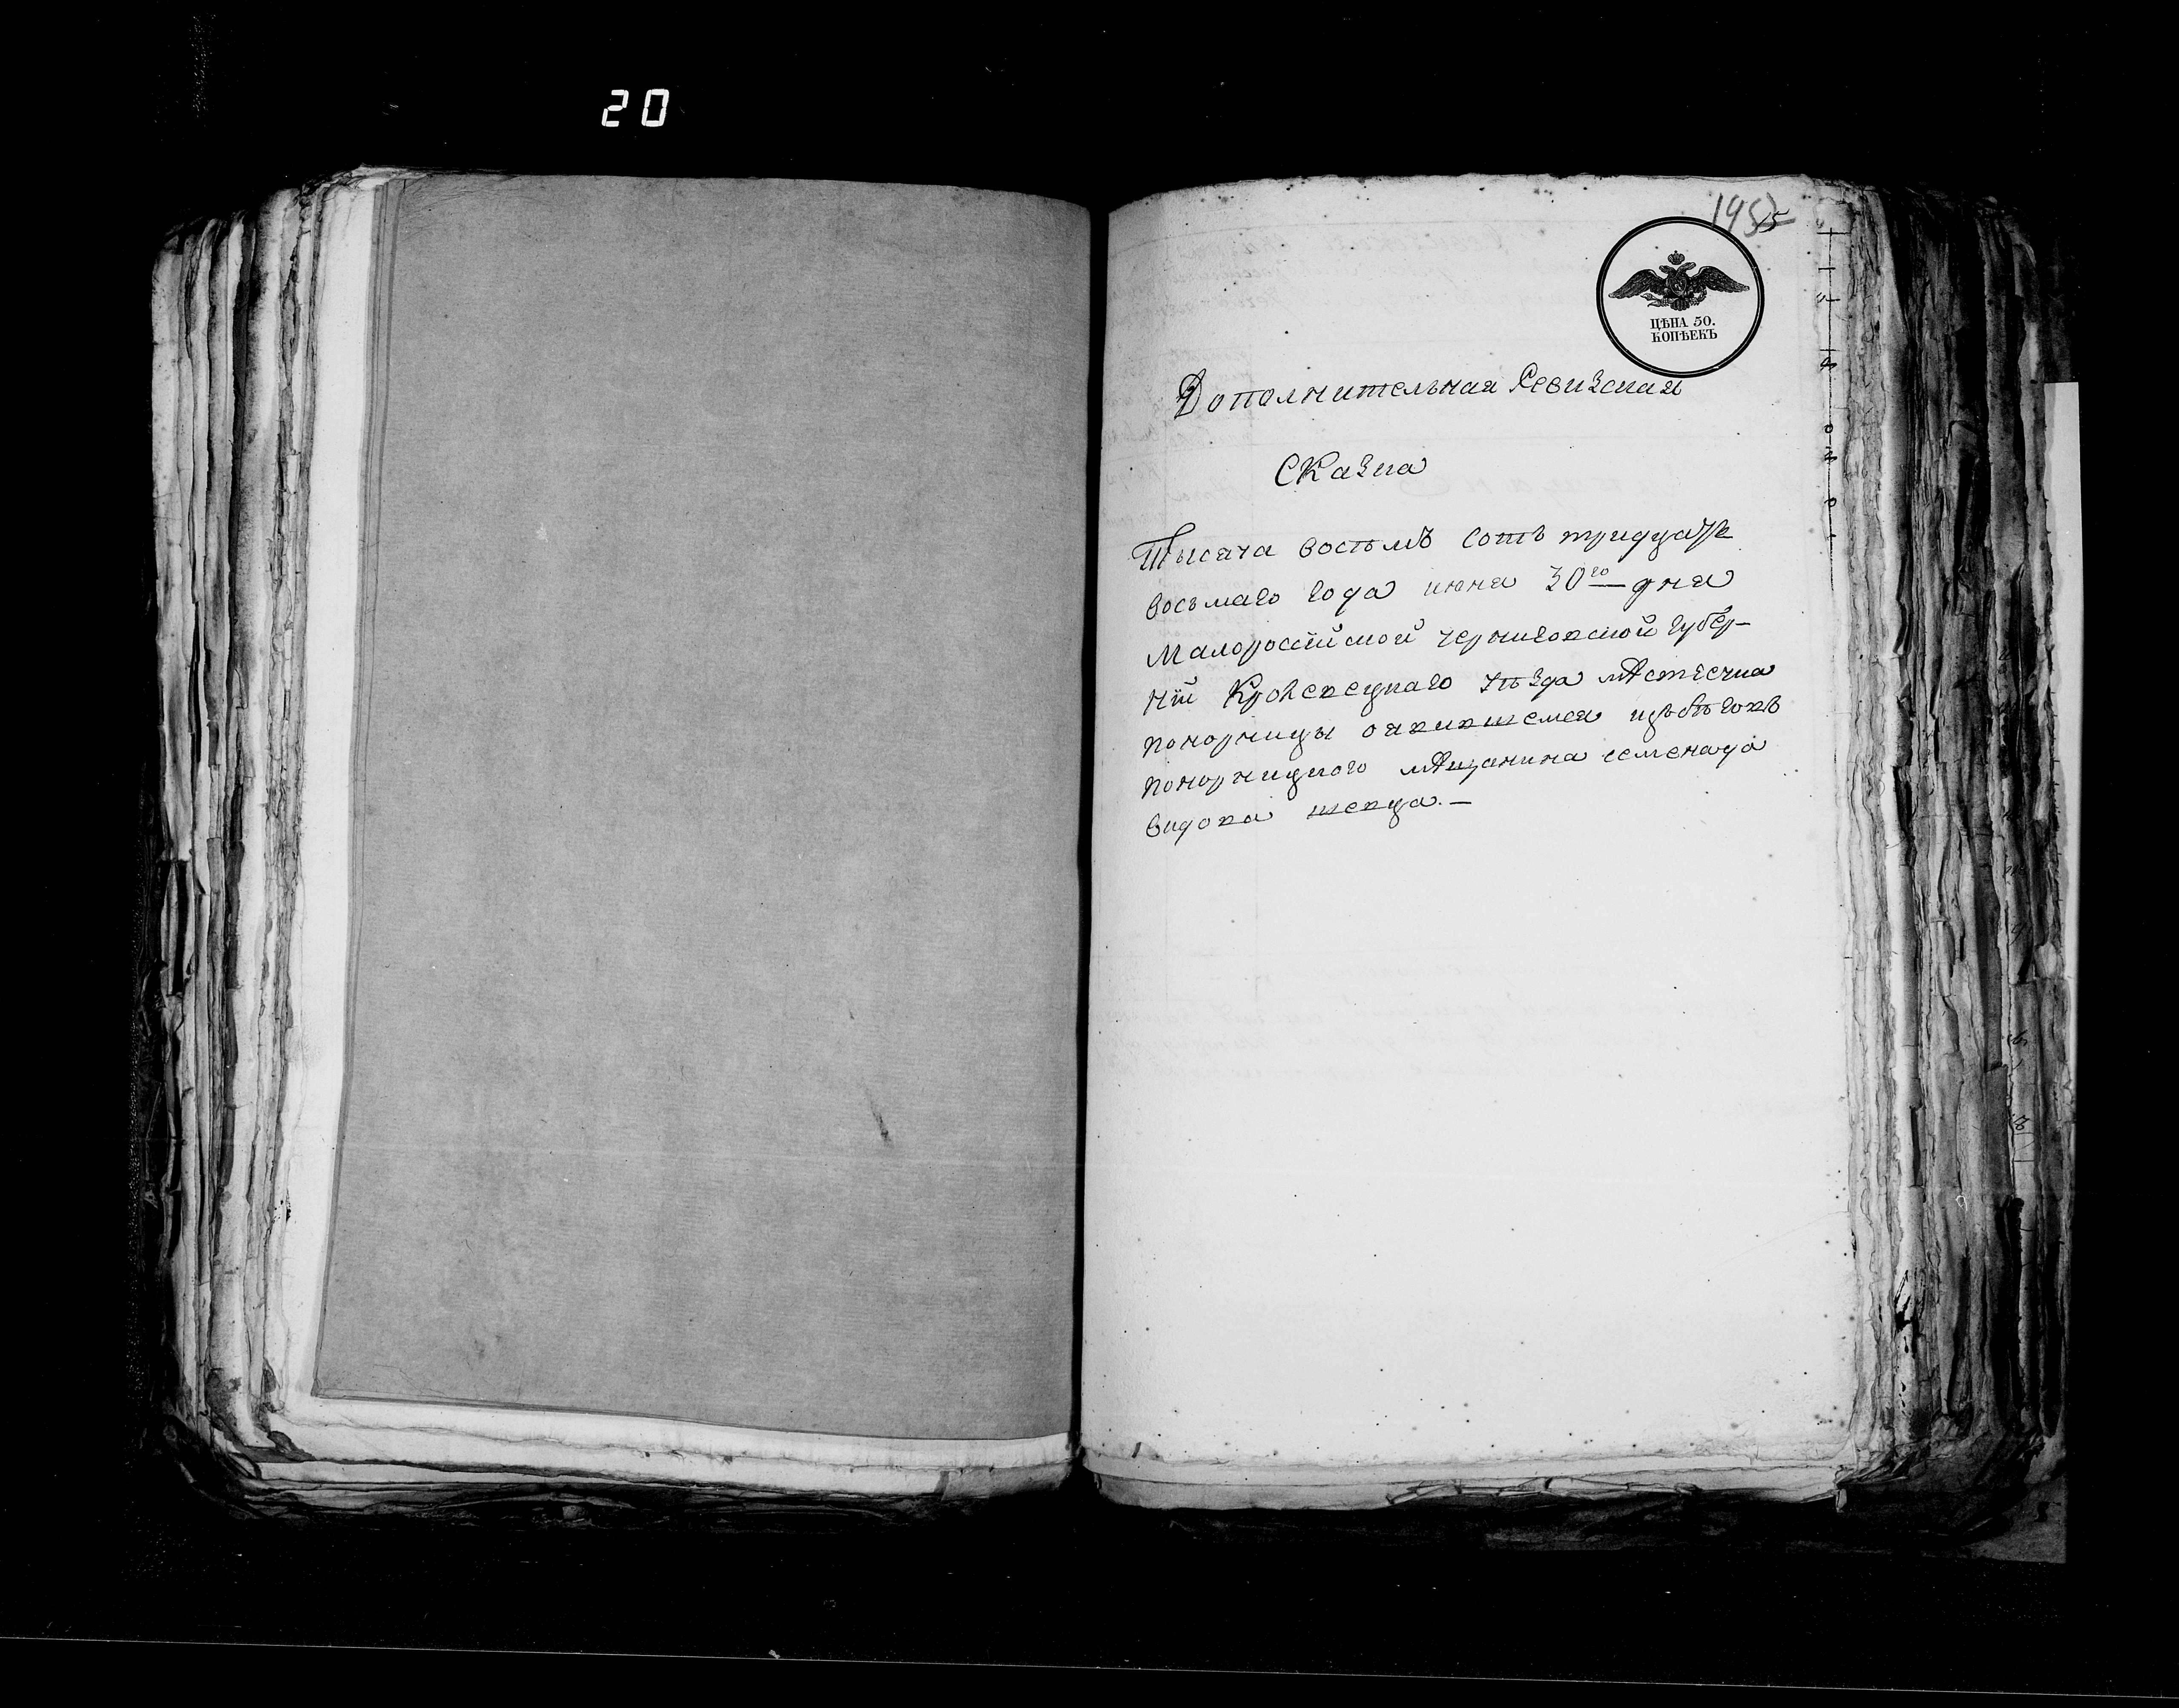 20
195
ЦѢНА 50.
КОПѢЕКЪ
Дополнительная Ревизская
Сказка
Тысяча востьмъ сотъ тридцать
восьмаго года июня 30го дня
Малороссійской черниговской губер-
ніи Кролевецкаго уѣзда мѣстечка
понорницы оявившемся изъ бѣговъ
понорницкого мѣщанина семена да
видова шевца. —